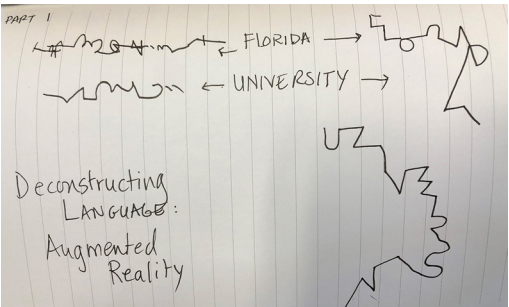 PART 1
FLORIDA
UNIVERSITY
Deconstructing
LANGUAGE:
Augmented
Reality